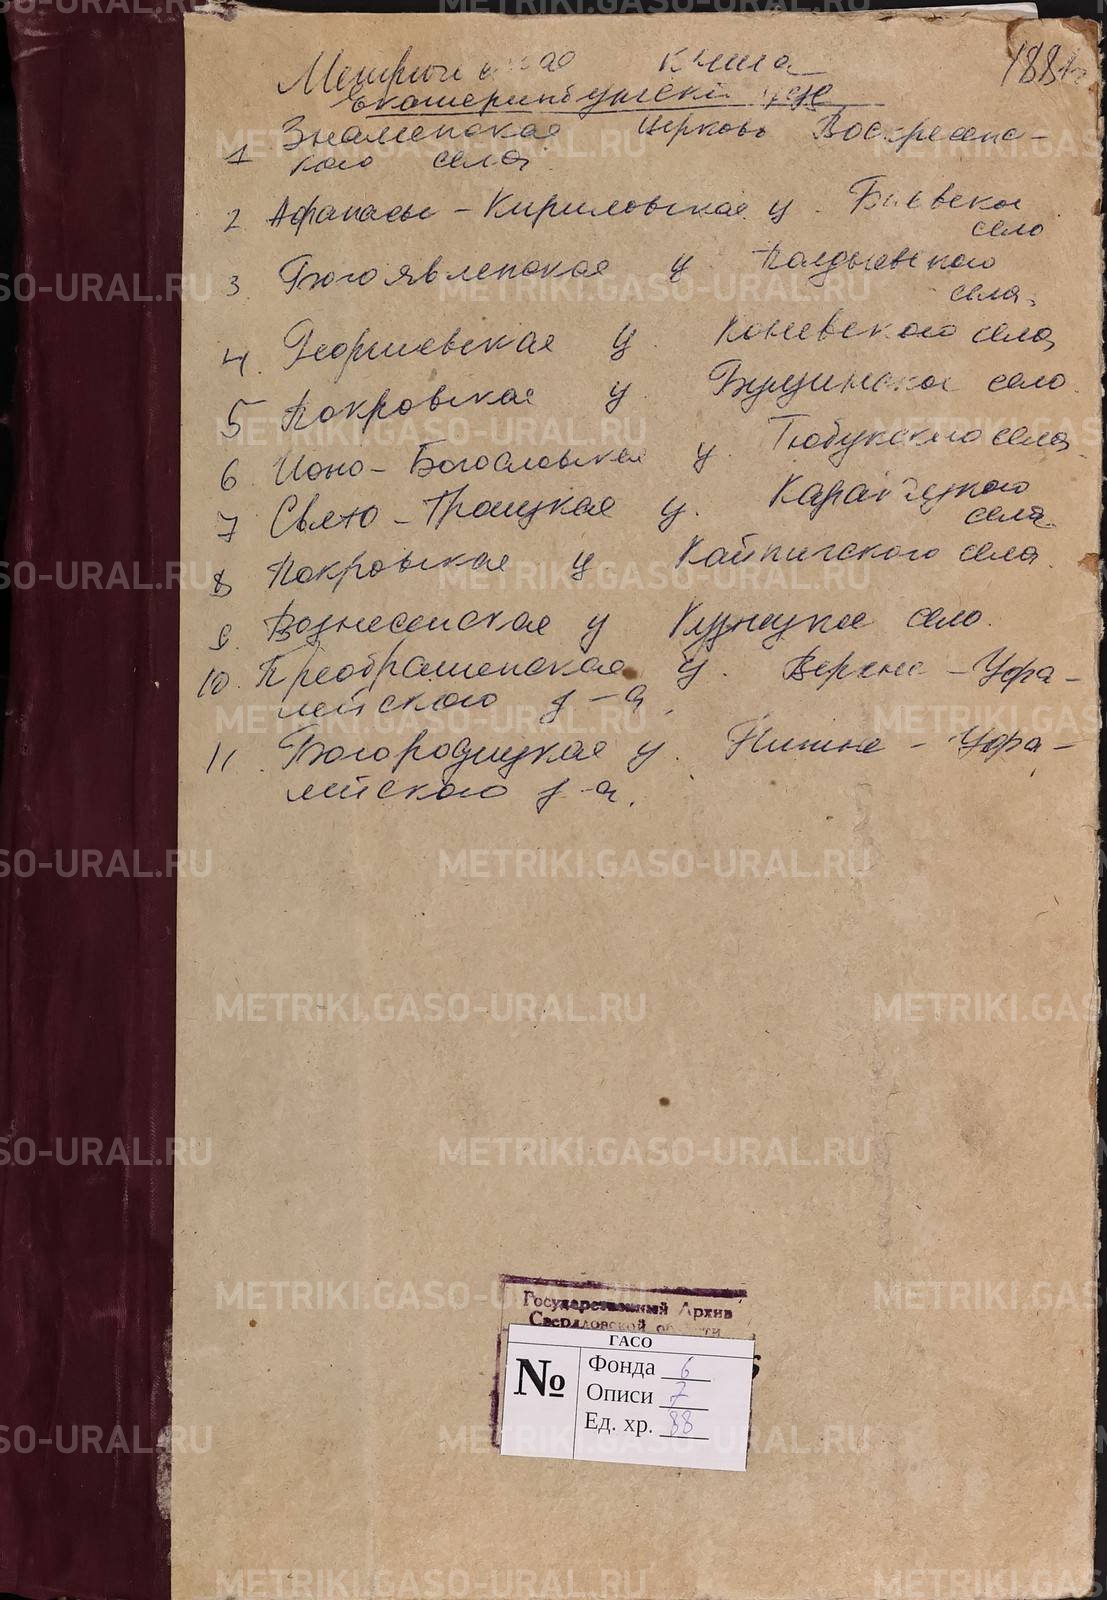 188
Метрич ая книга
Екатеринбургск уезд
1 Знаменская церковь Воскресенс-
кого села
2 Афанасье-Кириловская ц. Б евское
село
3 Богоявленская ц. Полдневского
села.
4. Георгиевская ц. Коневского села
5 Покровская ц. Бущинское село.
6 Ионо-Богословская ц. Тюбукского села
7 Свято-Троицкая ц. Кара
села.
8 Покровская ц села.
9. Вознесенская ц село.
10. Преображенская ц. Верхне-Уфа-
лейского з-а.
11. Богородицкая ц. Нижне-Уфа-
лейского з-а.
Государственный Архив
Свердловской области
ГАСО
№
Фонда 6
Описи 7
Ед. хр. 88
METRIKI.GASO-URAL.RU